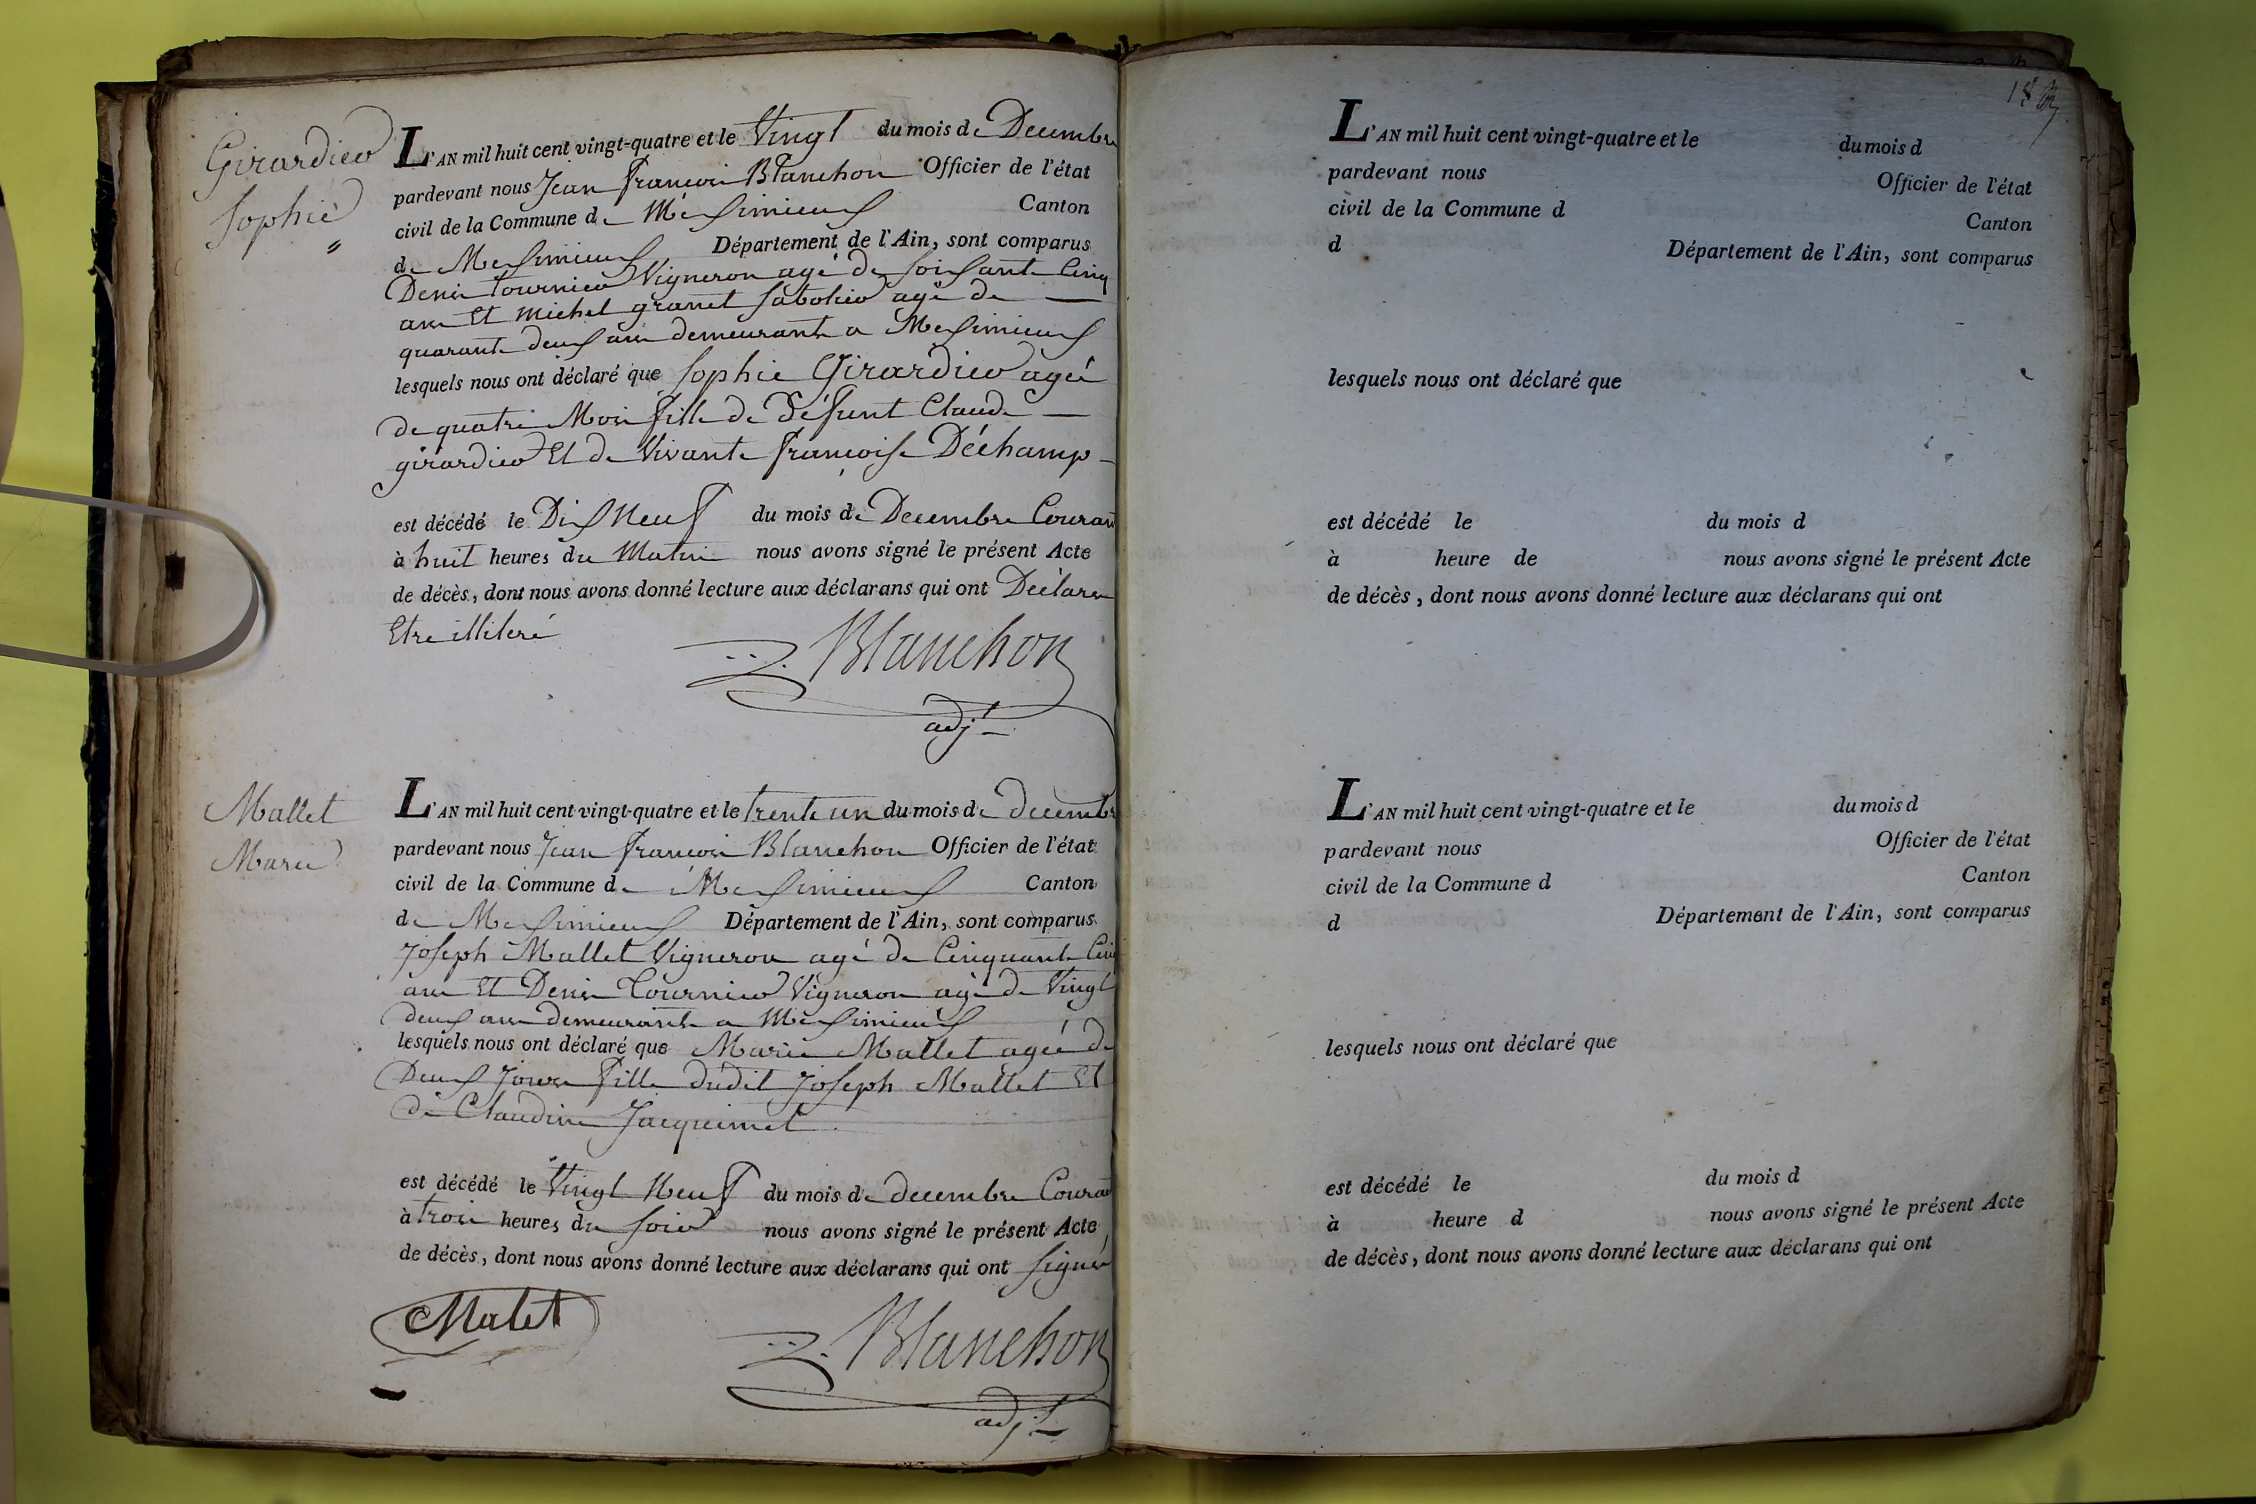 Girardier
Sophie
"
L'AN mil huit cent vingt-quatre et le Vingt du mois de Decembre
pardevant nous Jean françois Blanchon Officier de l'état
civil de la Commune de Messimieux Canton
de Messimieux Département de l'Ain, sont comparus
Denis tournier Vigneron agé de soissante Cinq
ans Et michel granet sabotier agé de
quarante deux ans demeurants a Messimieux
lesquels nous ont déclaré que Sophie Girardier agée
de quatre Mois fille de Défunt Claude
girardier Et de Vivante françoise Déchamp
est décédé le Dix Neuf du mois de Decembre Courant
à huit heures du Matin nous avons signé le présent Acte
de décès, dont nous avons donné lecture aux déclarans qui ont Déclaré
Etre illiteré
Blanchon
adjt
Mallet
Marie
L'AN mil huit cent vingt-quatre et le trente un du mois de decembre
pardevant nous Jean françois Blanchon Officier de l'état
civil de la Commune de Messimieux Canton
de Messimieux Département de l'Ain, sont comparus
Joseph Mallet Vigneron agé de Cinquante Cinq
ans Et Denis Tournier Vigneron agé de Vingt
deux ans demeurants a Messimieux
lesquels nous ont déclaré que Marie Mallet agée de
Deux Jours fille dudit Joseph Mallet Et
de Claudine Jacquemet
est décédé le Vingt Neuf du mois de decembre Courant
à trois heures du soir nous avons signé le présent Acte
de décès, dont nous avons donné lecture aux déclarans qui ont signé
Malet
Blanchon
adjt
L'AN mil huit cent vingt-quatre et le du mois d
pardevant nous Officier de l'état
civil de la Commune d Canton
d Département de l'Ain, sont comparus
lesquels nous ont déclaré que
est décédé le du mois d
à heure de nous avons signé le présent Acte
de décès, dont nous avons donné lecture aux déclarans qui ont
L'AN mil huit cent vingt-quatre et le du mois d
pardevant nous Officier de l'état
civil de la Commune d Canton
d Département de l'Ain, sont comparus
lesquels nous ont déclaré que
est décédé le du mois d
à heure d nous avons signé le présent Acte
de décès, dont nous avons donné lecture aux déclarans qui ont